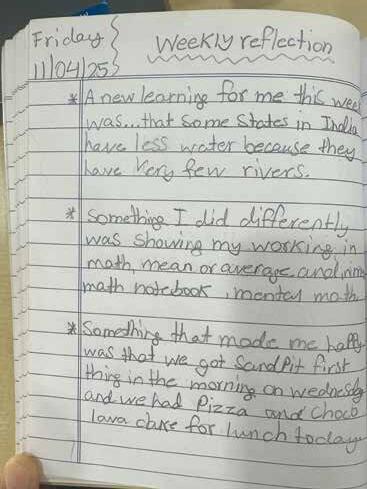 Friday
11/04/25
Weekly reflection
* A new learning for me this week
was... that some States in India
have less water because they
have very few rivers.
* Something I did differently
was showing my working in
math, mean or average and in my
math notebook, mental math
* Something that made me happy
was that we got Sandpit first
thing in the morning on wednesday
and we had Pizza and Choco
lava cake for lunch today